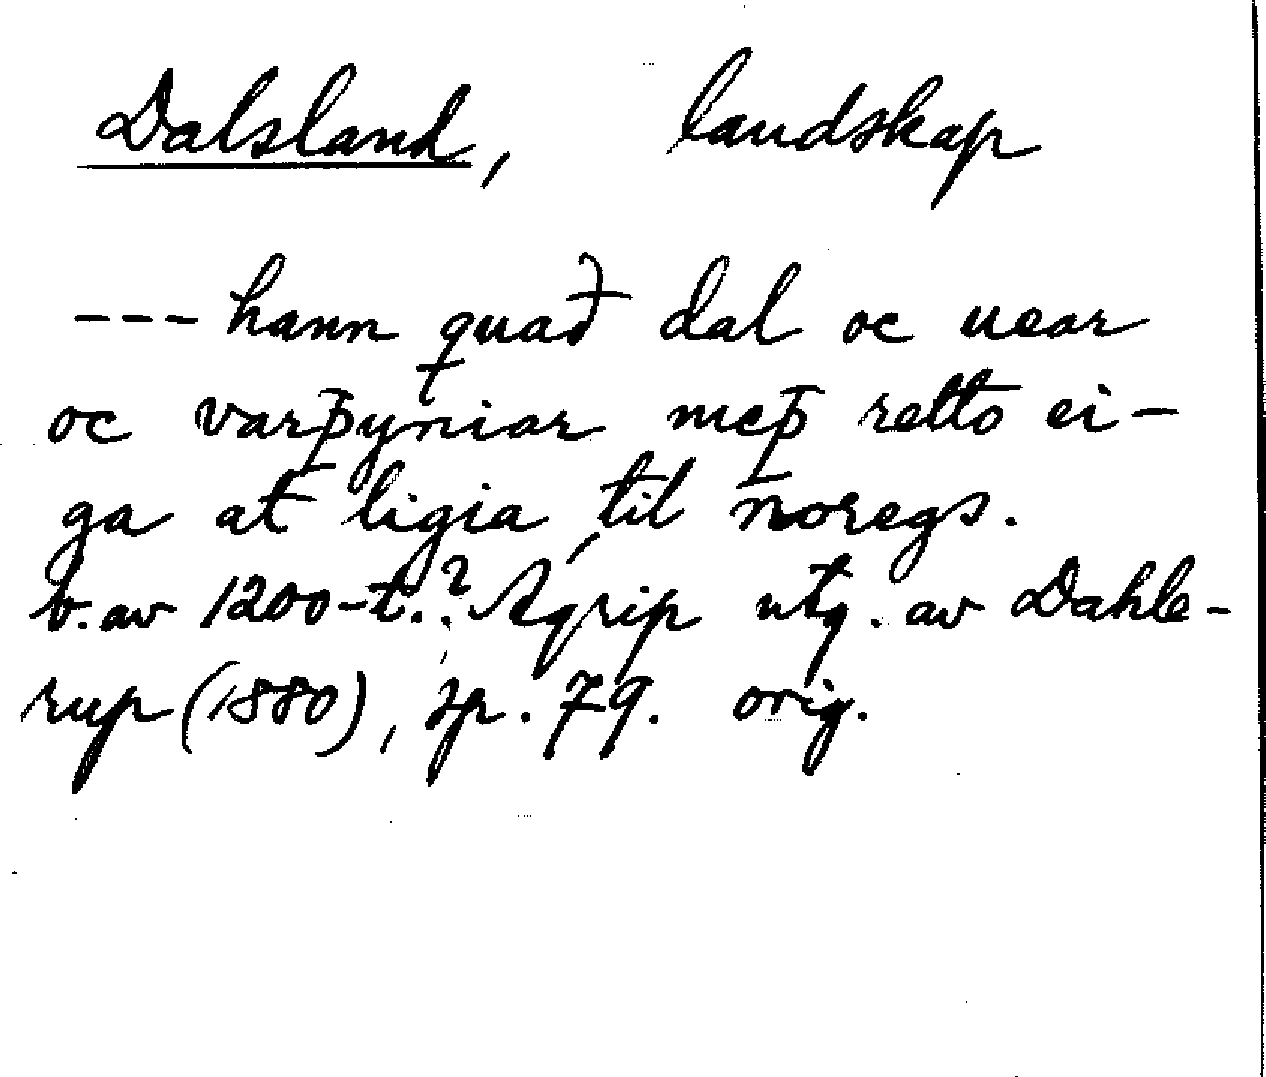 Dalsland, landskap
--- hann quað dal oc uear
oc varþyniar meþ retto ei-
ga at ligia, til noregs.
b. av 1200-t.? Agrip utg. av Dahle-
rup (1880), sp. 79. orig.